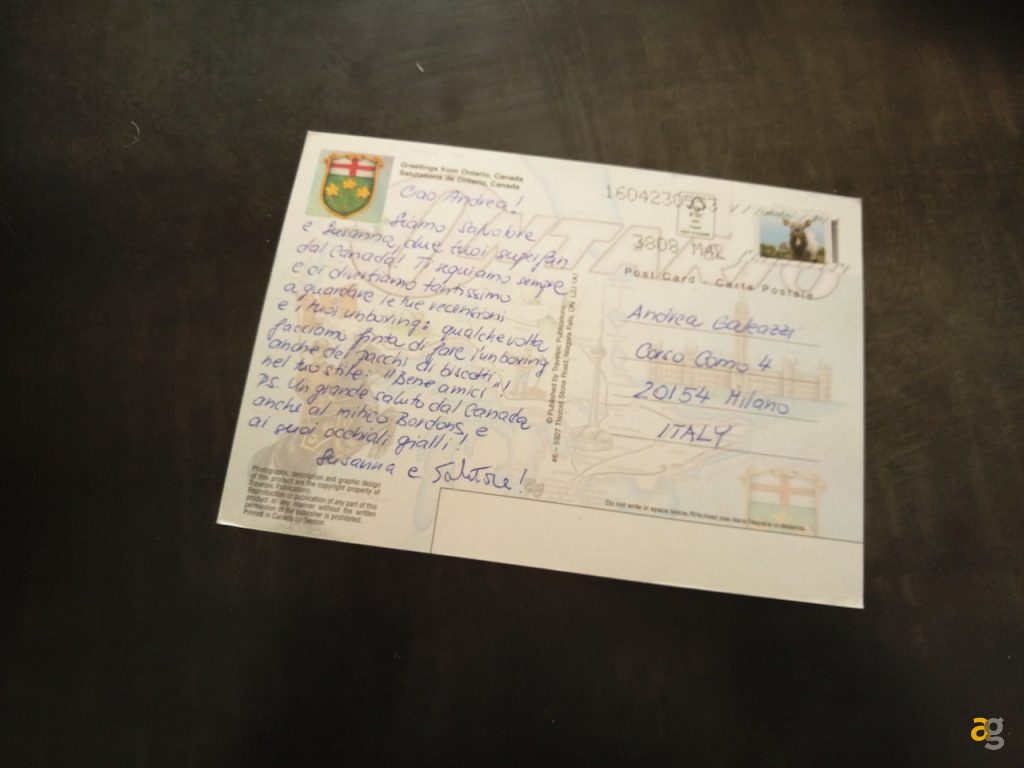 Greetings from Ontario, Canada
Salutations de Ontario, Canada
Ciao Andrea!
Siamo Salvatore
e Susanna, due tuoi superfan
dal Canada! Ti seguiamo sempre
e ci divertiamo tantissimo
a guardare le tue recensioni
e i tuoi unboxing: qualche volta
facciamo finta di fare l'unboxing
anche dei pacchi di biscotti
nel tuo stile: "Bene amici"!
P.S. Un grande saluto dal Canada
anche al mitico Bordons e
ai suoi occhiali gialli!
Susanna e Salvatore!
Photographic, description and graphic design
of this product are the copyright property of
Travelpic Publications.
Reproduction or publication of any part of this
product in any manner without the written
permission of the publisher is prohibited.
Printed in Canada by
© Published by Travelpic Publications
#6 – 5927 Thorold Stone Road, Niagara Falls, ON
ONTARIO
3808 MAR
Post Card - Carte Postale
Andrea Galeazzi
Corso Como 4
20154 Milano
ITALY
Do not write in space below./N'écrivez pas dans l'espace ci-dessous.
ag